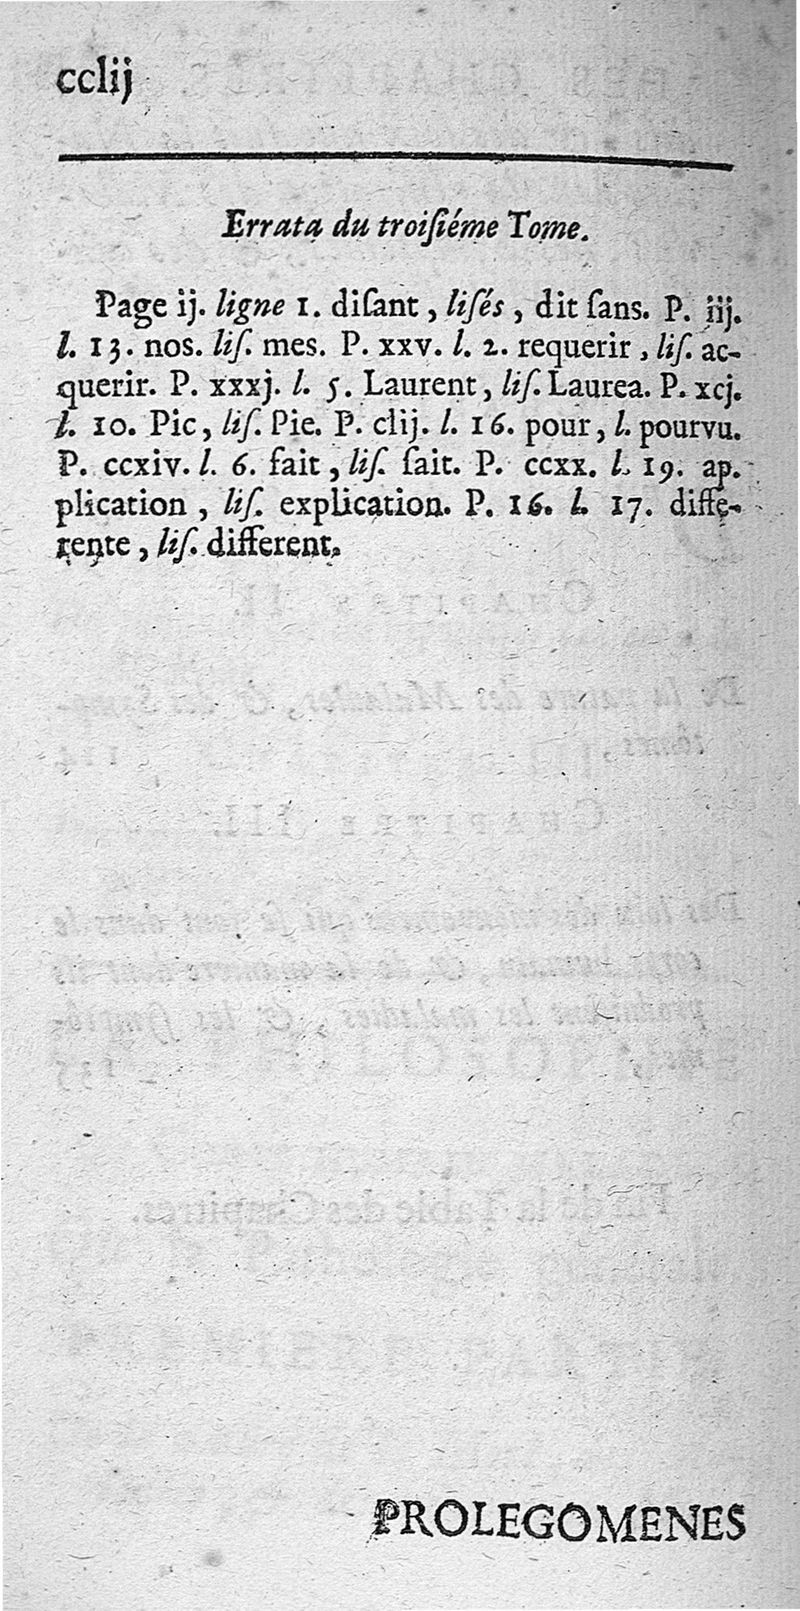 cclij
Errata du troiſiéme Tome.
Page ij. ligne 1. diſant, liſés, dit ſans. P. iij.
l. 13. nos. liſ. mes. P. xxv. l. 2. requerir, liſ. ac-
querir. P. xxxj. l. 5. Laurent, liſ. Laurea. P. xcj.
l. 10. Pic, liſ. Pie. P. clij. l. 16. pour, l. pourvu.
P. ccxiv. l. 6. fait, liſ. ſait. P. ccxx. l. 19. ap.
plication, liſ. explication. P. 16. l. 17. diffe-
rente, liſ. different.
PROLEGOMENES